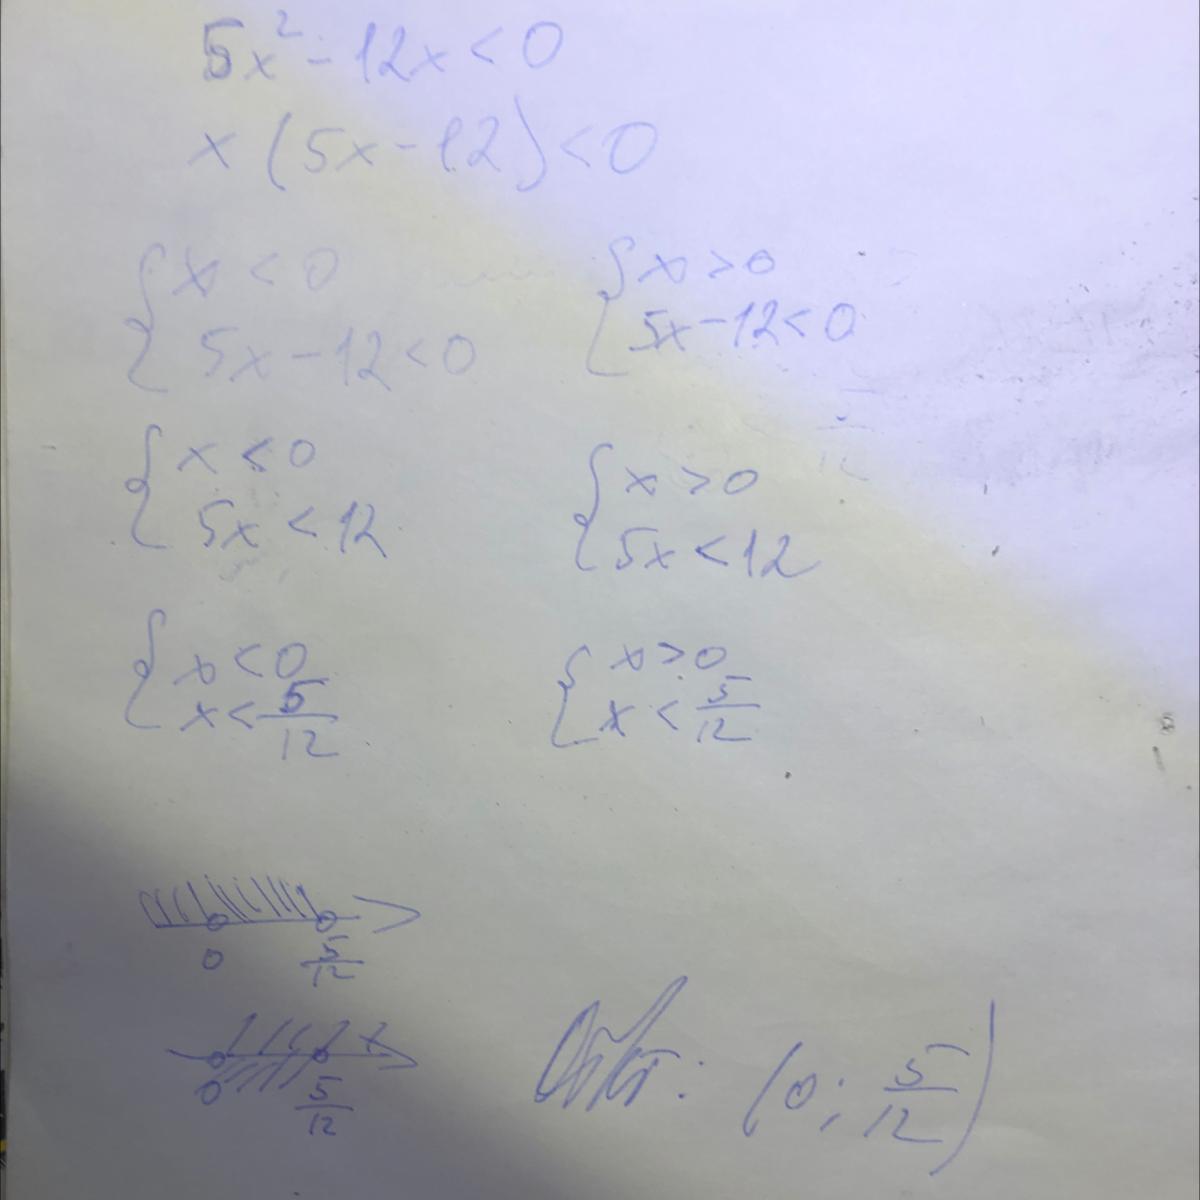 5x² - 12x < 0
x (5x - 12) < 0
{ x < 0
5x - 12 < 0
{ x > 0
5x - 12 < 0
{ x < 0
5x < 12
{ x > 0
5x < 12
{ x < 0
x < 5/12
{ x > 0
x < 5/12
0 5/12
x
0 5/12
Ответ: (0; 5/12)